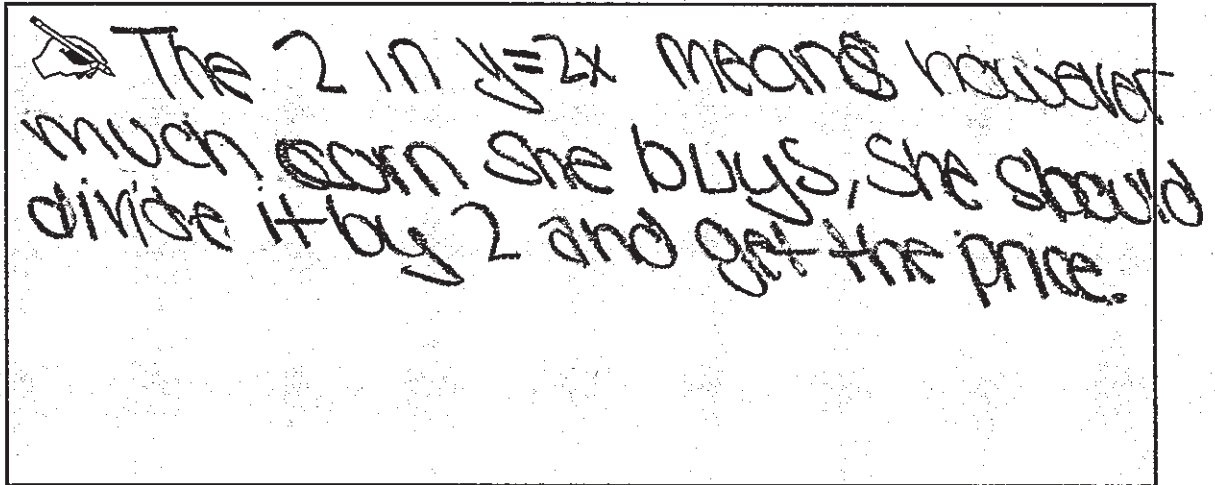 The 2 in y=2x means however
much corn she buys, she should
divide it by 2 and get the price.